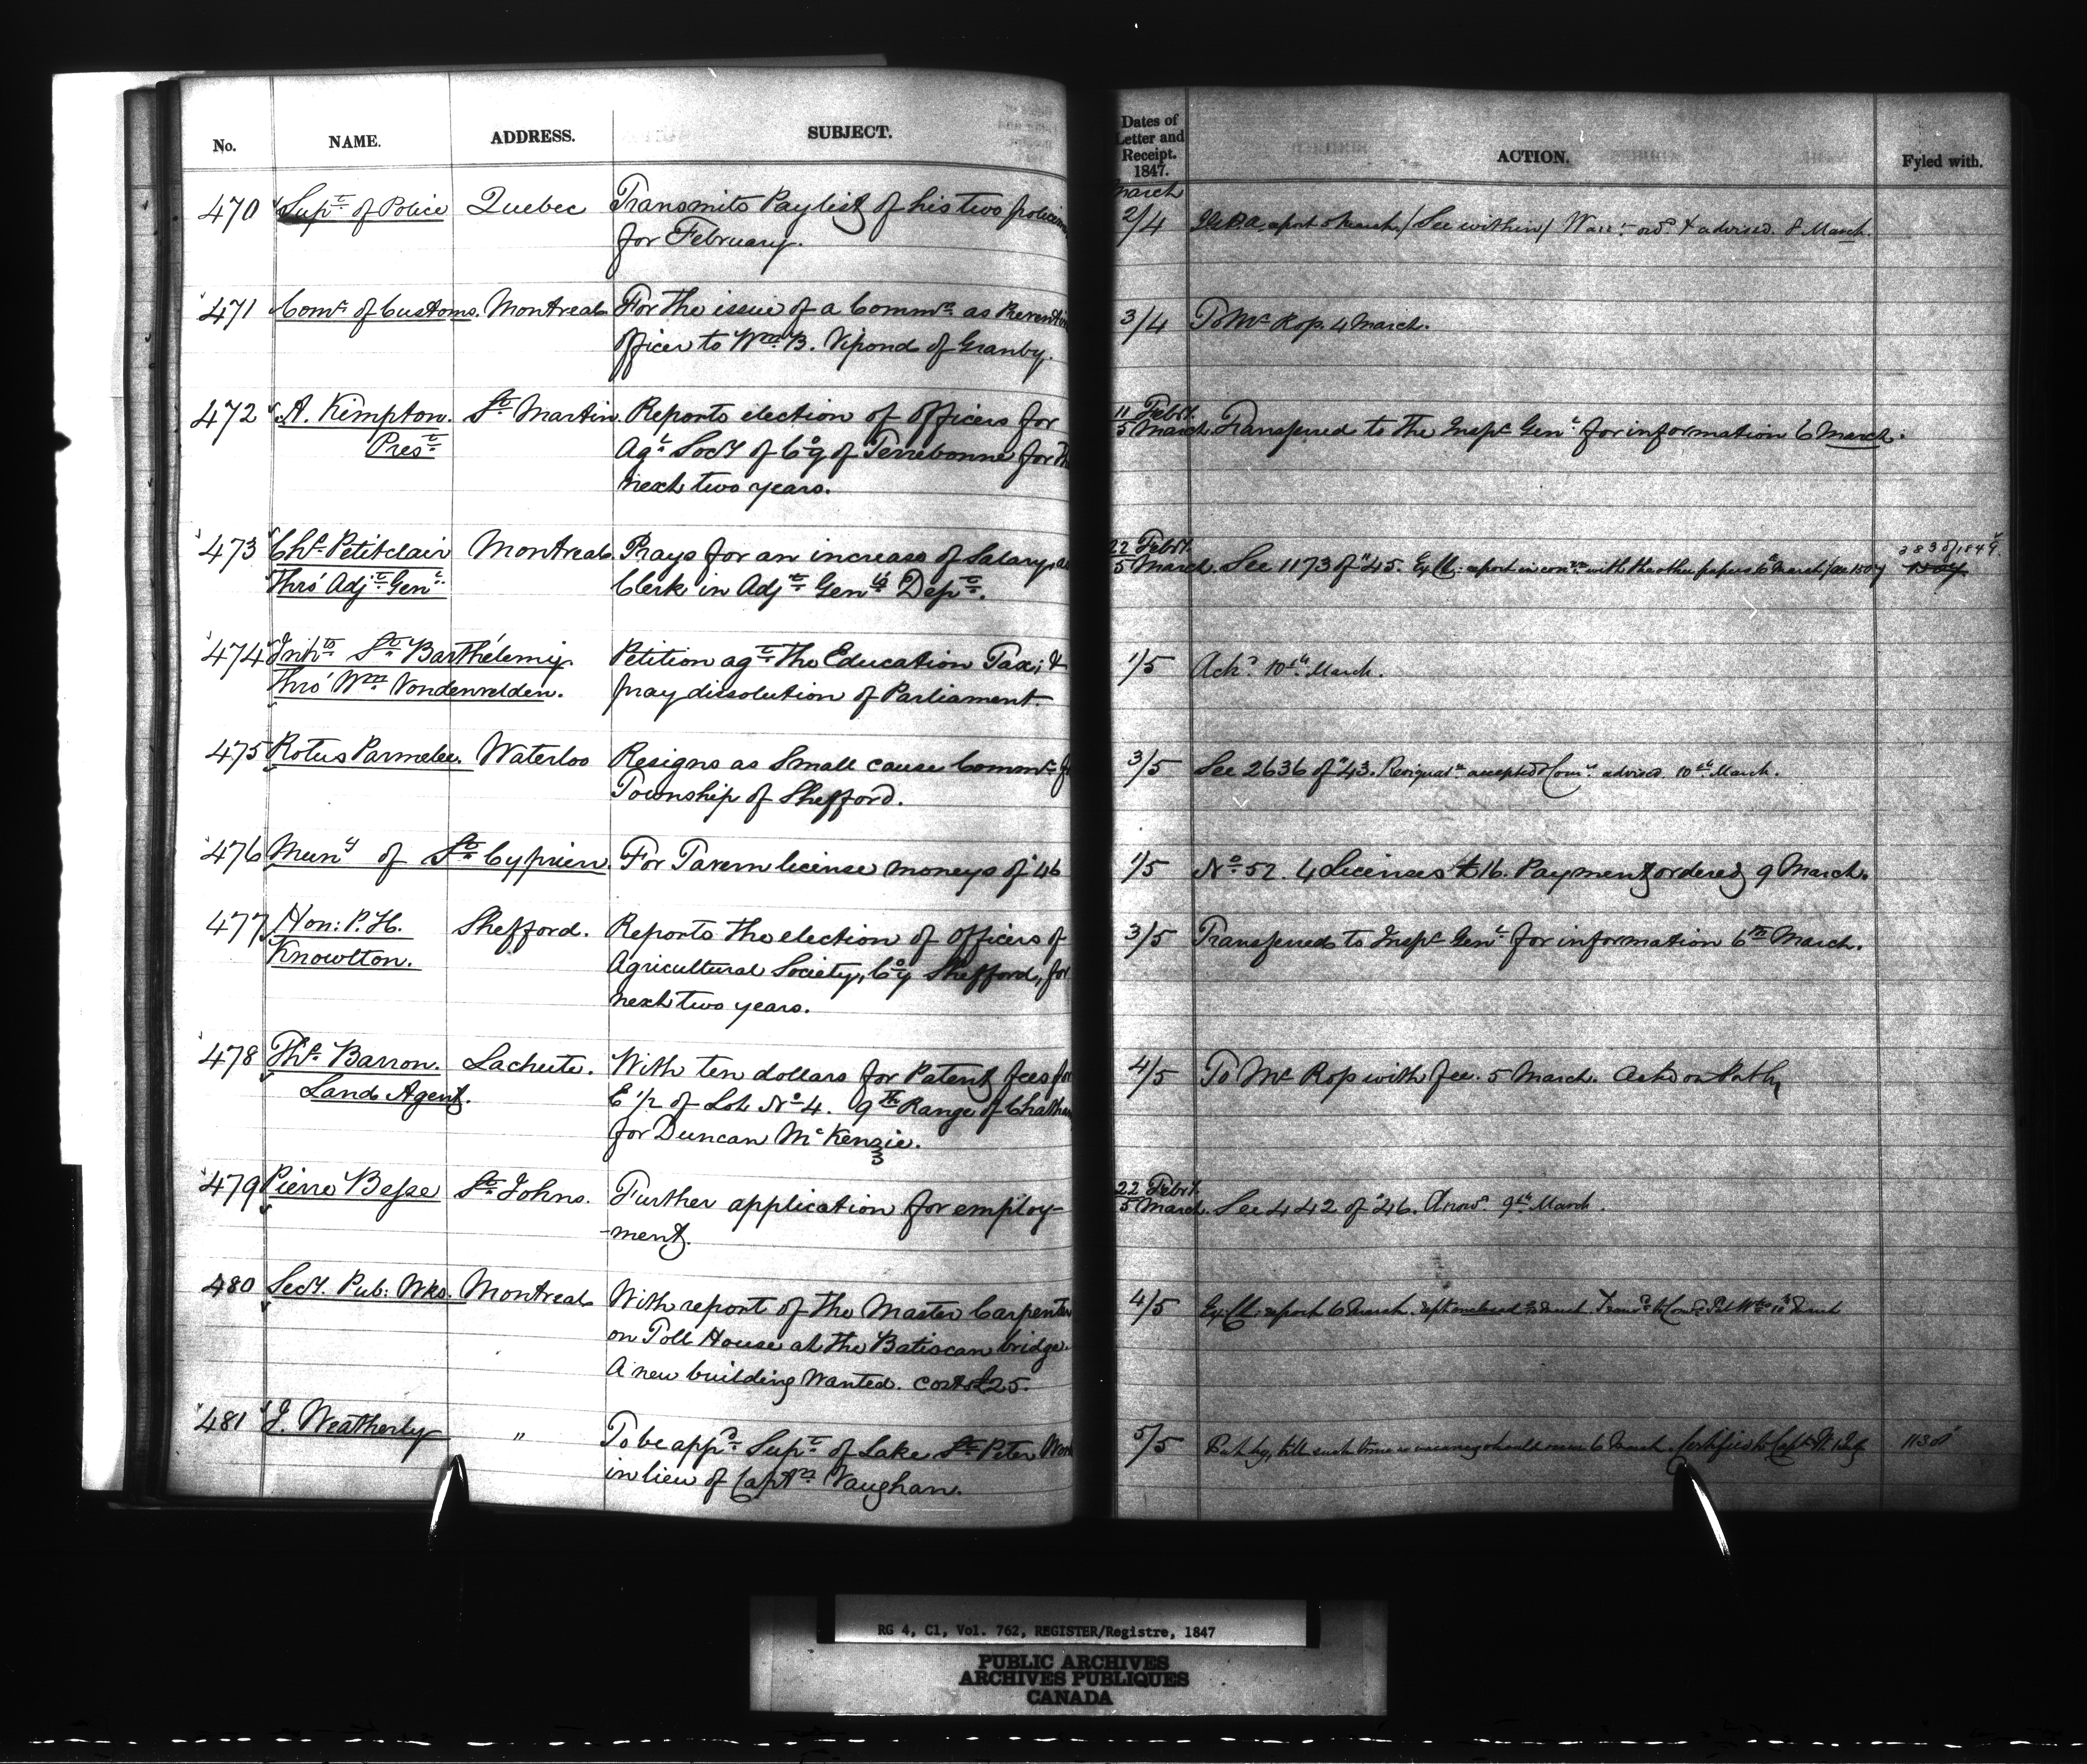 No. NAME. ADDRESS. SUBJECT.
Dates of Letter and Receipt. 1847. ACTION. Fyled with.
470 Supt. of Police Quebec Transmits Paylist of his two policemen
for February.
March 2/4 report 5 March / See within / Warrt. ord. & advised. 8 March.
471 Comr. of Customs. Montreal For the issue of a Commn. as Preventive
officer to Wm. B. Vipond of Granby.
3/4 To Mr. Rop. 4 March.
472 A. Kempton. St. Martin. Reports election of officers for
Prest. Agl. Socy. of Coy of Terrebonne for the
next two years.
11 Feby. 5 March. Transferred to the Inspr. Genl. for information 6 March.
473 Chs. Petitclair Montreal. Prays for an increase of Salary, as
Thro' Adjt. Genl. Clerk in Adjt. Genl's Dept.
22 Feby. 5 March. See 1173 of "45. Ex. Cl. report in con. with the other papers 6 March / see 1507
383 of 1849.
474 Inhts. St. Barthélemy. Petition agt. the Education Tax; &
Thro' Wm. Vondenvelden. pray dissolution of Parliament.
1/5 Ackd. 10th March.
475 Rotus Parmelee. Waterloo Resigns as Small cause Commr. for
Township of Shefford.
3/5 See 2636 of "43. Resignatn. accepted & Comr. advised. 10th March.
476 Muny of St. Cyprien. For Tavern license moneys of '46
1/5 No. 52. 4 Licenses £16. Payment ordered 9 March.
477 Hon: P. H. Shefford. Reports the election of officers of
Knowlton. Agricultural Society, Coy Shefford, for
next two years.
3/5 Transferred to Inspr. Genl. for information 6th March.
478 Ths. Barron. Lachute. With ten dollars for Patent fees for
Land Agent. E 1/2 of Lot No. 4. 9th Range of Chatham
for Duncan McKenzie.
4/5 To Mr. Rop with fee. 5 March.
479 Pierre Besse St. Johns. Further application for employ-
-ment.
22 Feby. 5 March. See 442 of "46. Answd. 9th March.
480 Secy. Pub: Wks. Montreal With report of the Master Carpenter
on Toll House at the Batiscan bridge.
A new building wanted. cost £25.
4/5 Ex. Cl. report 6 March.
481 J. Weatherly " To be appd. Supt. of Lake St. Peter Works
in lieu of Captn. Vaughan.
5/5 Put by, till such time as vacancy should occur 6 March. 1130
RG 4, C1, Vol. 762, REGISTER/Registre, 1847
PUBLIC ARCHIVES
ARCHIVES PUBLIQUES
CANADA